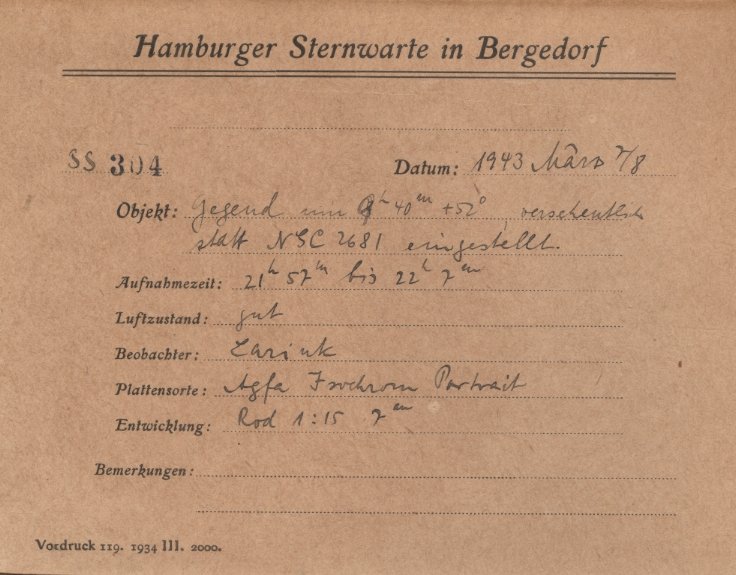 Hamburger Sternwarte in Bergedorf
SS 304
Datum: 1943 März 7/8
Objekt: Gegend um 9ʰ 40ᵐ +52° versehentlich
statt NGC 2681 eingestellt.
Aufnahmezeit: 21ʰ 57ᵐ bis 22ʰ 7ᵐ
Luftzustand: gut
Beobachter: Larink
Plattensorte: Agfa Isochrom Portrait
Entwicklung: Rod 1:15 7ᵐ
Bemerkungen:
Vordruck 119. 1934 III. 2000.